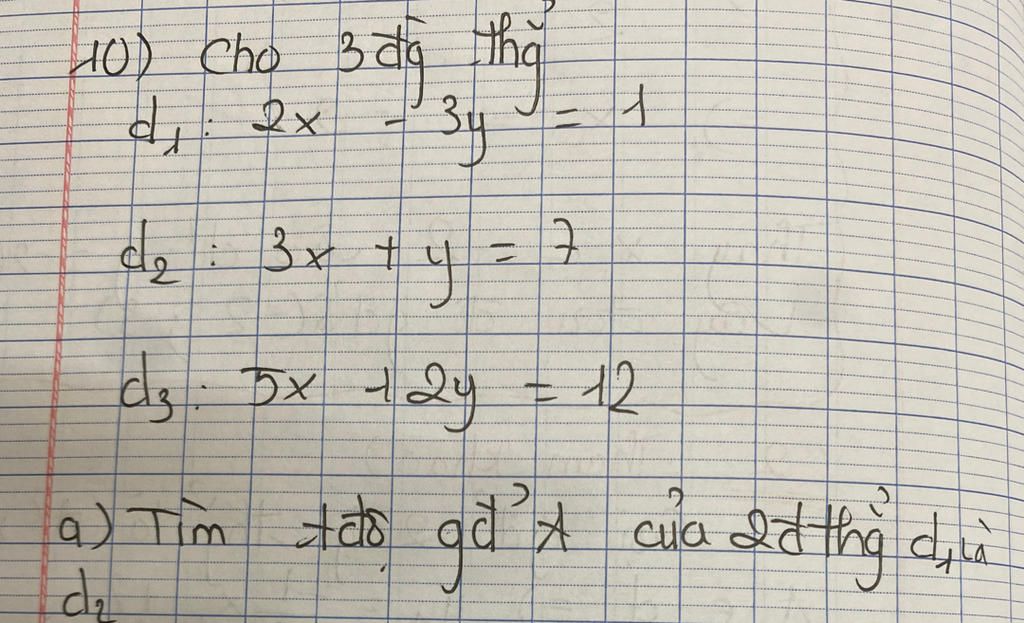 10) Cho 3 đg thg̉
d₁: 2x - 3y = 1
d₂: 3x + y = 7
d₃: 5x + 2y = 12
a) Tìm tđộ gđ' A của 2đ thg̉ d₁ và
d₂